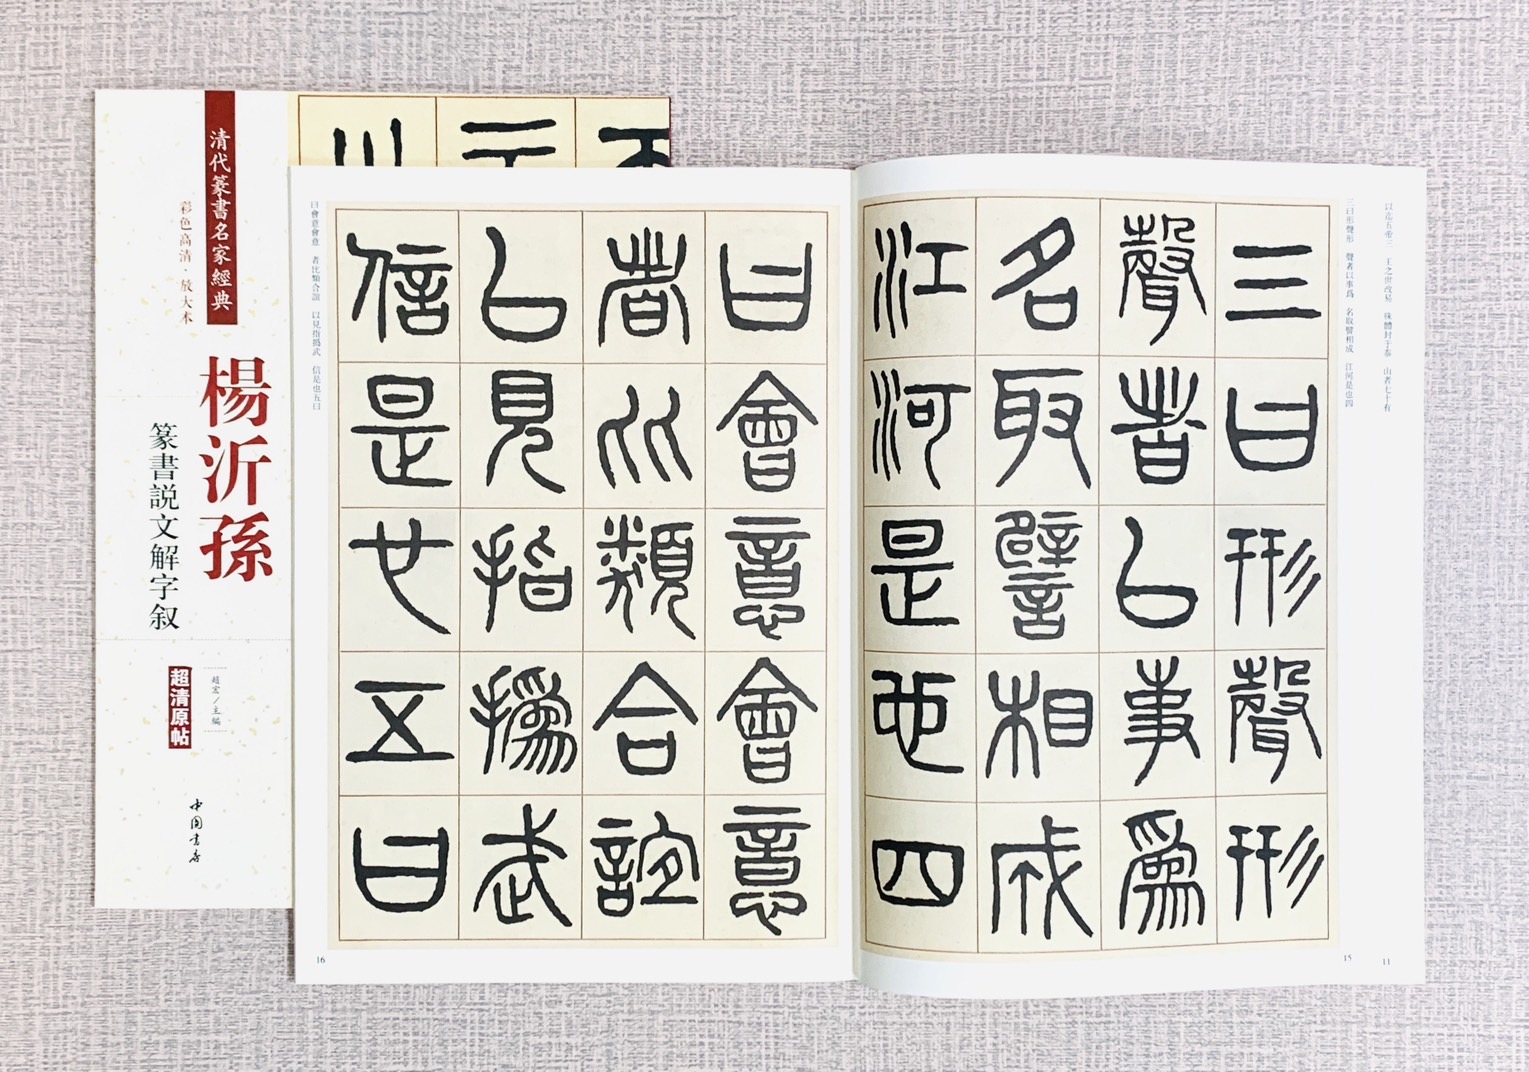 清代篆書名家經典
彩色高清·放大本
楊沂孫
篆書説文解字叙
趙宏/主編
超清原帖
中国書店
以迄五帝三 王之世改易 殊體封于泰 山者七十有
三曰形聲形 聲者以事爲 名取譬相成 江河是也四
三曰形聲形
聲者㠯事爲
名取譬相成
江河是也四
曰會意會意
者比類合誼
㠯見指撝武
信是也五曰
曰會意會意 者比類合誼 以見指撝武 信是也五曰
16
15
11